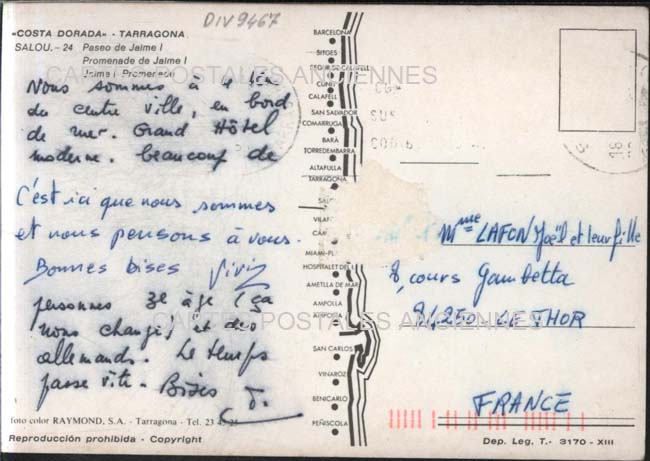 DIV9467
«COSTA DORADA» - TARRAGONA
SALOU.- 24 Paseo de Jaime I
Promenade de Jaime I
Jaime I Promenade
CARTES POSTALES ANCIENNES
Nous sommes à
du centre ville, en bord
de mer. Grand Hôtel
moderne. beaucoup de
C'est ici que nous sommes
et nous pensons à vous.
Bonnes bises
personnes 3e âge (ça
nous change) et des
allemands. Le temps
passe vite. Bises
foto color RAYMOND, S.A. - Tarragona - Tel. 23
Reproducción prohibida - Copyright
BARCELONA
SITGES
CUNIT
CALAFELL
SAN SALVADOR
COMARRUGA
BARÁ
TORREDEMBARRA
ALTAFULLA
TARRAGONA
HOSPITALET DEL I
AMETLLA DE MAR
AMPOLLA
AMPOSTA
SAN CARLOS
VINAROZ
BENICARLO
PEÑISCOLA
Mme LAFON Joël et leur fille
8, cours Gambetta
84250 LE THOR
FRANCE
CARTES POSTALES ANCIENNES
Dep. Leg. T.- 3170 - XIII